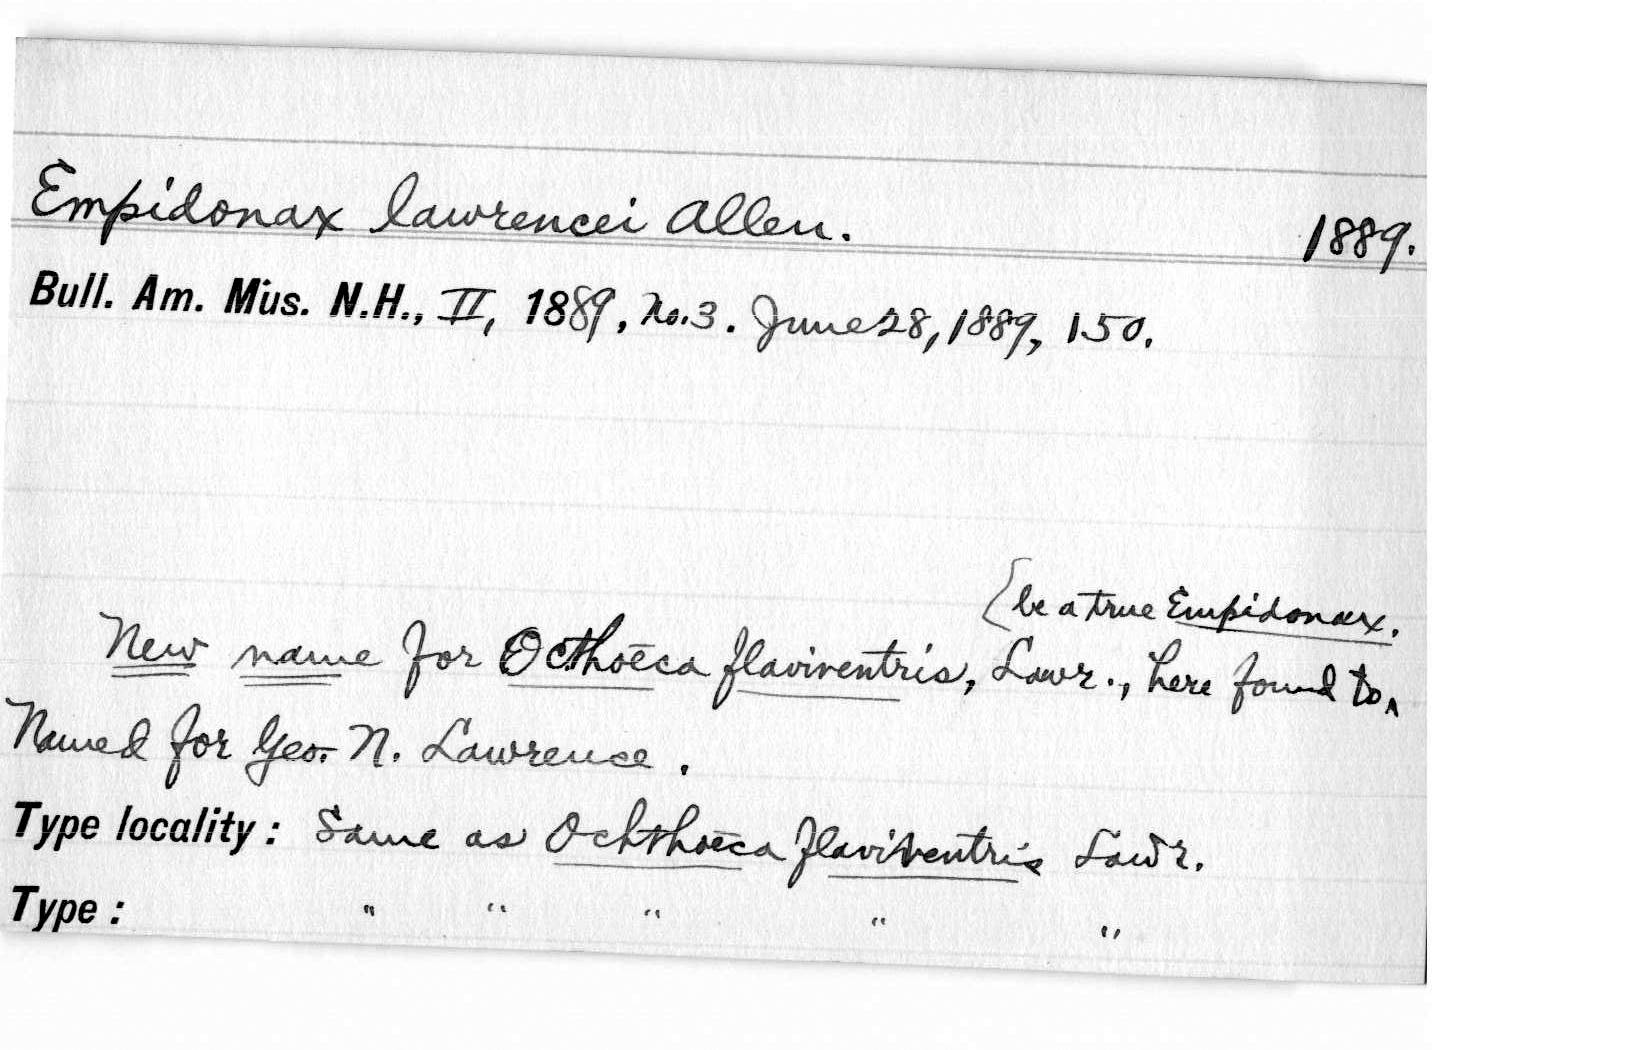 Empidonax lawrencei Allen. 1889.
Bull. Am. Mus. N.H., II, 1889, no. 3. June 28, 1889, 150.
{be a true Empidonax.
New name for Octhoēca flaviventris, Lawr., here found to‸
Named for Geo. N. Lawrence.
Type locality: Same as Ochthoēca flaviventris Lawr.
Type: " " " " "